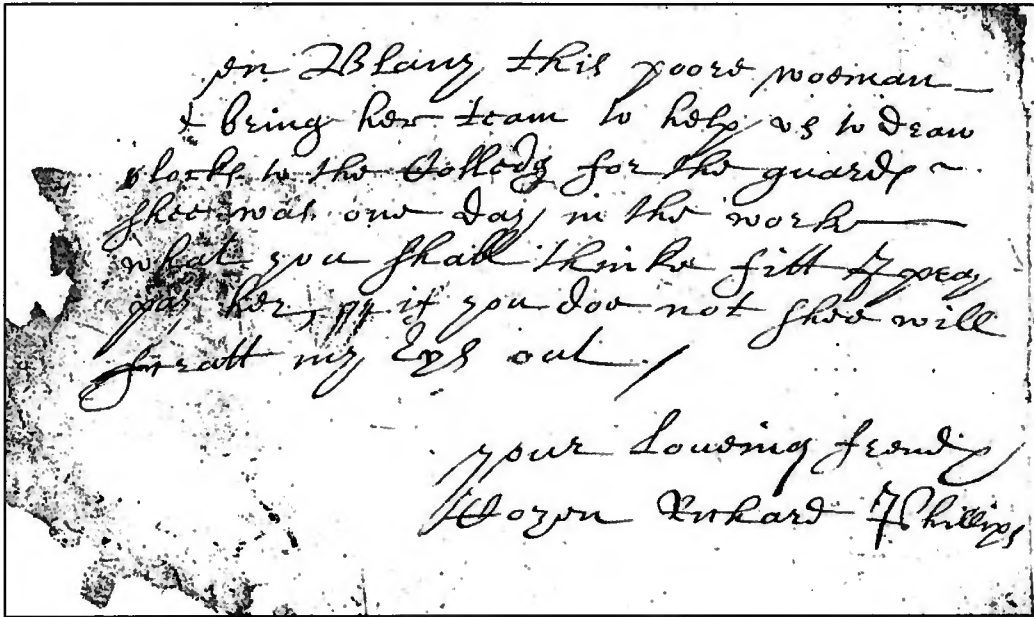 en Blany this poore woeman
& bring her team to help us to draw
blocks to the Colledg for the guards
shee was one day in the worke
what you shall thinke fitt I pray
pay her, if you doe not shee will
scratt my Eys out
your Loueing frend
Richard Phillips